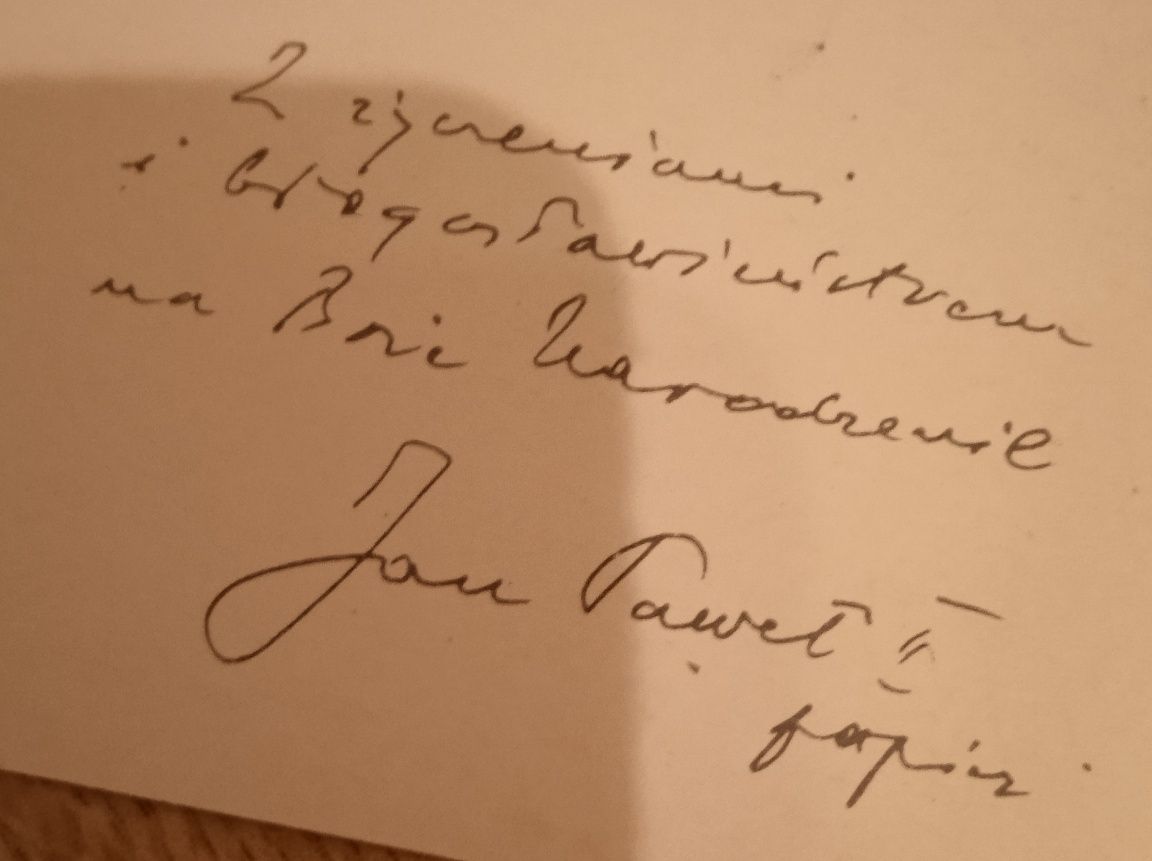 Z życzeniami
i błogosławieństwem
na Boże Narodzenie
Jan Paweł II
papież